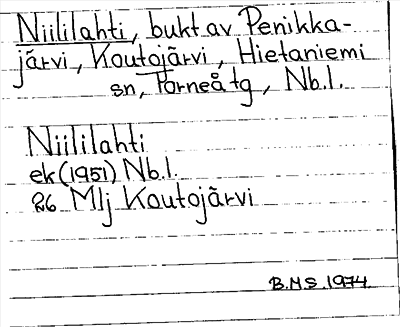 Niililahti, bukt av Penikka-
järvi, Koutojärvi, Hietaniemi
sn, Torneå tg, Nb.l.
Niililahti
ek (1951) Nb.l.
26 Mlj Koutojärvi
B.M.S. 1974